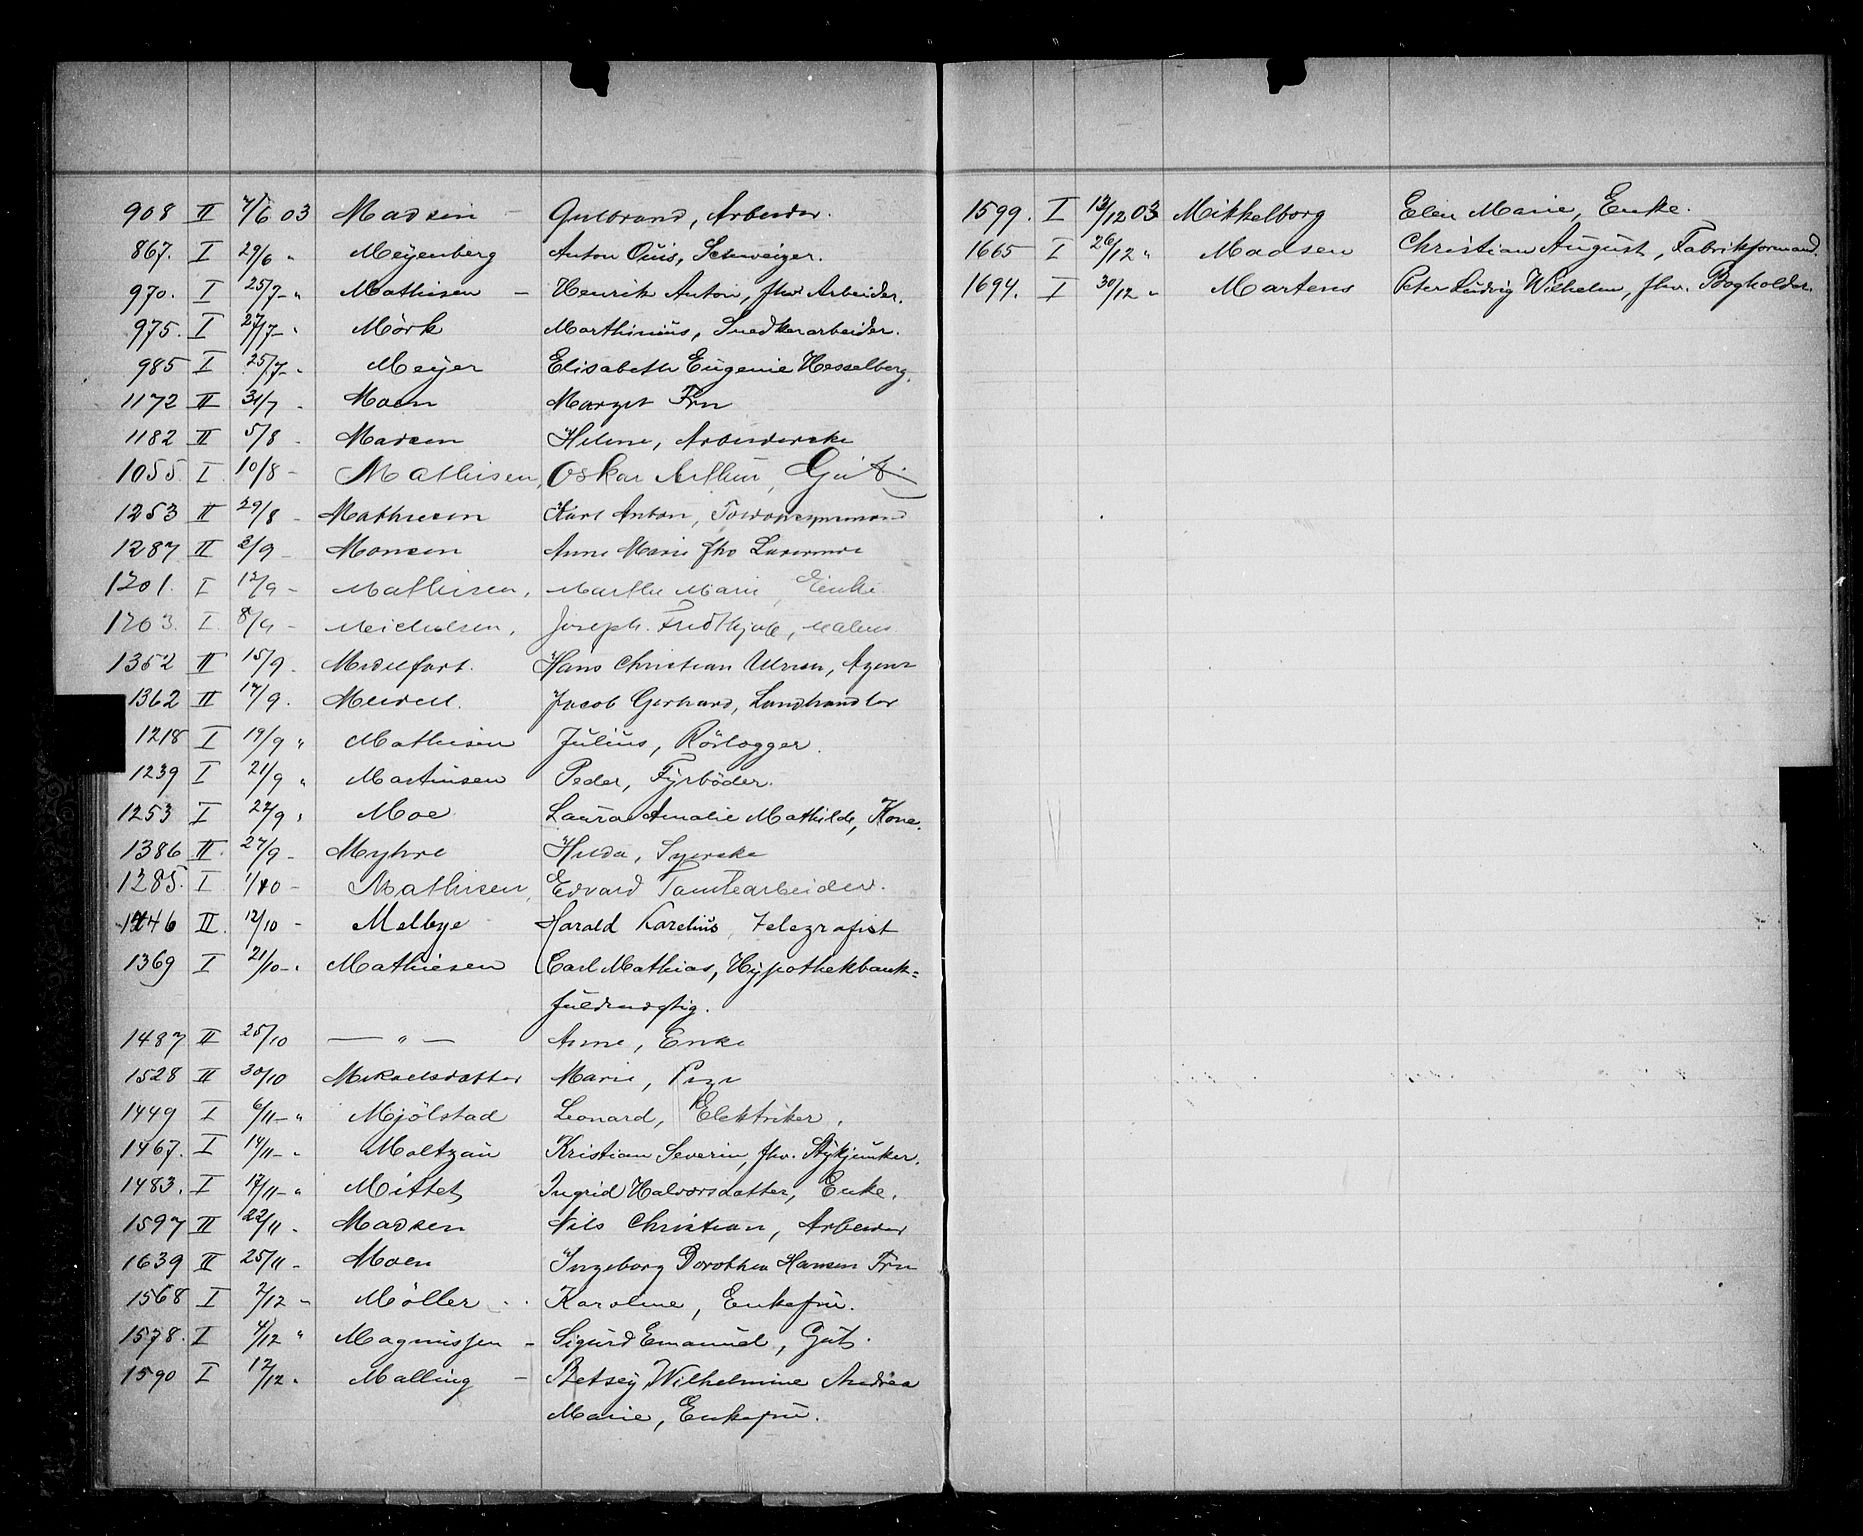 908 II 7/6 03 Madsen - Gulbrand, Arbeider.
867. I 29/6 " Meyenberg Anton Ouis, Schweizer.
970. I 25/7 - " Mathisen - Henrik Anton, fhv. Arbeider.
975. I 27/7 - " Mörk Marthinius, Snedkerarbeider.
985 I 25/7 - " Meyer Elisabeth Eugenie Hesselberg.
1172 II 31/7 - Moen Marget Fru
1182 II 5/8 - Madsen Helene, Arbeiderske
1055 I 10/8 - Mathisen, Oskar Arthur, Gut.
1253 II 29/8 - Mathisen Karl Anton,
1287 II 2/9 - Monsen Anne Marie fhv
1201. I 12/9 - Mathisen, Marthe Marie, Enke.
1203. I 8/9 - Meichelsen, Joseph Fridthjof, Malers
1352 II 15/9 - Midelfart. Hans Christian Ulrich, Agent
1362 II 17/9. Meidell. Jacob Gerhard, Landhandler
1218 I 19/9 " Mathisen Julius, Rörlægger.
1239 I 21/9 " Martinsen Peder, Fyrböder.
1253 I 22/9 " Moe Laura Amalie Mathilde, Kone.
1386 II. 27/9 - Myhre Hilda, Syerske
1285. I 1/10 - Mathisen, Edvard Tomtearbeider.
1446 II. 12/10 - Melbye Harald Karelius, Telegrafist
1369 I 21/10 - " Mathiesen Carl Mathias, Hypothekbank=
fuldmægtig.
1487 II 25/10 — " — Anne, Enke
1528 II 30/10 Mikaelsdatter Marie, Pige
1449 I 6/11 - " Mjölstad Leonard, Elektriker.
1467. I 14/11 - " Moltzau Kristian Severin, fhv. Stykjunker.
1483. I 17/11 - " Mittet Ingrid Halvorsdatter, Enke.
1597 II 22/11 - Madsen Nils Christian, Arbeider
1639 II 25/11 - Moen Ingeborg Dorothea Hansen Fru
1568 I 2/12 - Möller - Karoline, Enkefru.
1578. I 4/12 " Magnussen - Sigurd Emanuel, Gut.
1590 I 12/12 " Malling - Betsey Wilhelmine Andrea
Marie, Enkefru.
1599. I 13/12 03 Mikkelborg Elen Marie, Enke.
1665 I 26/12 " Madsen Christian August, Fabrikformand.
1694. I 30/12 " Martens Peter Ludvig Wilhelm, fhv. Bogholder.